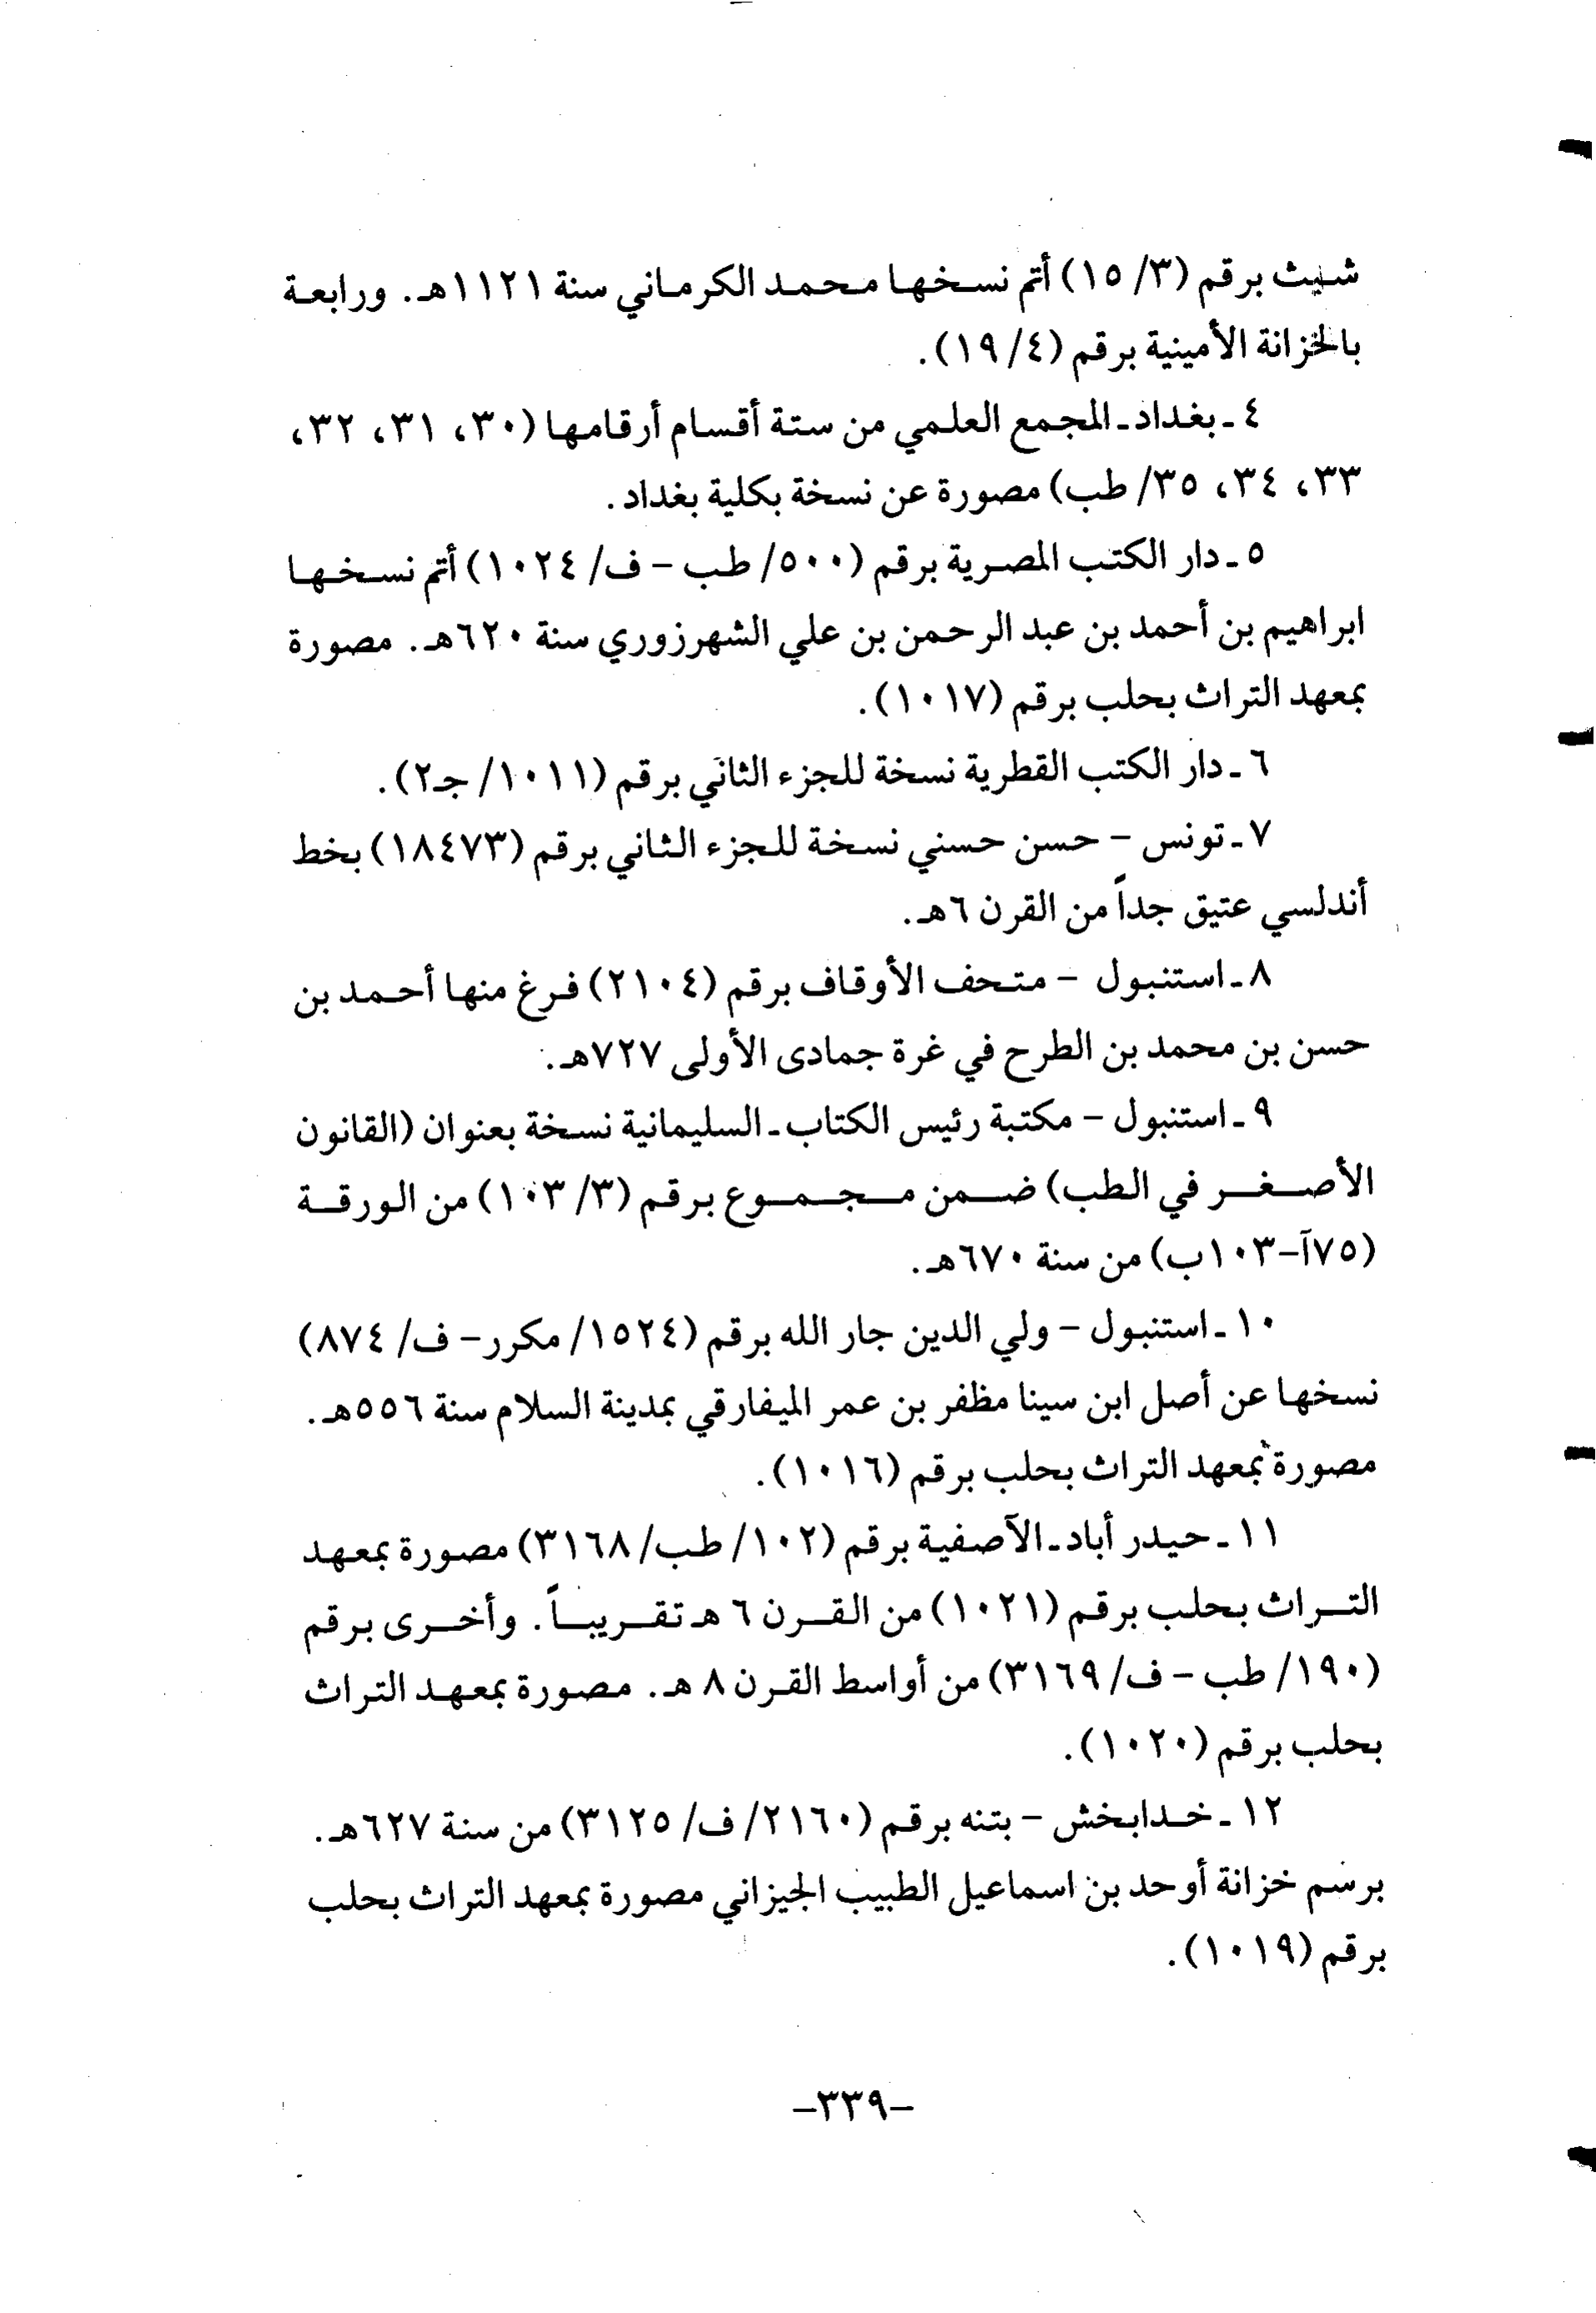 شيث برقم (٣/ ١٥) أتم نسخها محمد الكرماني سنة ١١٢١هـ. ورابعة
بالخزانة الأمينية برقم (٤/ ١٩).
٤ ـ بغداد ـ المجمع العلمي من ستة أقسام أرقامها (٣٠، ٣١، ٣٢،
٣٣، ٣٤، ٣٥/ طب) مصورة عن نسخة بكلية بغداد.
٥ ـ دار الكتب المصرية برقم (٥٠٠/ طب – ف/ ١٠٢٤) أتم نسخها
ابراهيم بن أحمد بن عبد الرحمن بن علي الشهرزوري سنة ٦٢٠هـ. مصورة
بمعهد التراث بحلب برقم (١٠١٧).
٦ ـ دار الكتب القطرية نسخة للجزء الثاني برقم (١٠١١/ جـ٢).
٧ ـ تونس – حسن حسني نسخة للجزء الثاني برقم (١٨٤٧٣) بخط
أندلسي عتيق جداً من القرن ٦هـ.
٨ ـ استنبول – متحف الأوقاف برقم (٢١٠٤) فرغ منها أحمد بن
حسن بن محمد بن الطرح في غرة جمادى الأولى ٧٢٧هـ.
٩ ـ استنبول – مكتبة رئيس الكتاب ـ السليمانية نسخة بعنوان (القانون
الأصغر في الطب) ضمن مجموع برقم (٣/ ١٠٣) من الورقة
(٧٥آ–١٠٣ب) من سنة ٦٧٠هـ.
١٠ ـ استنبول – ولي الدين جار الله برقم (١٥٢٤/ مكرر – ف/ ٨٧٤)
نسخها عن أصل ابن سينا مظفر بن عمر الميفارقي بمدينة السلام سنة ٥٥٦هـ.
مصورة بمعهد التراث بحلب برقم (١٠١٦).
١١ ـ حيدر أباد ـ الآصفية برقم (١٠٢/ طب/ ٣١٦٨) مصورة بمعهد
التراث بحلب برقم (١٠٢١) من القرن ٦ هـ تقريباً. وأخرى برقم
(١٩٠/ طب – ف/ ٣١٦٩) من أواسط القرن ٨ هـ. مصورة بمعهد التراث
بحلب برقم (١٠٢٠).
١٢ ـ خدابخش – بتنه برقم (٢١٦٠/ ف/ ٣١٢٥) من سنة ٦٢٧هـ.
برسم خزانة أوحد بن اسماعيل الطبيب الجيزاني مصورة بمعهد التراث بحلب
برقم (١٠١٩).
–٣٣٩–